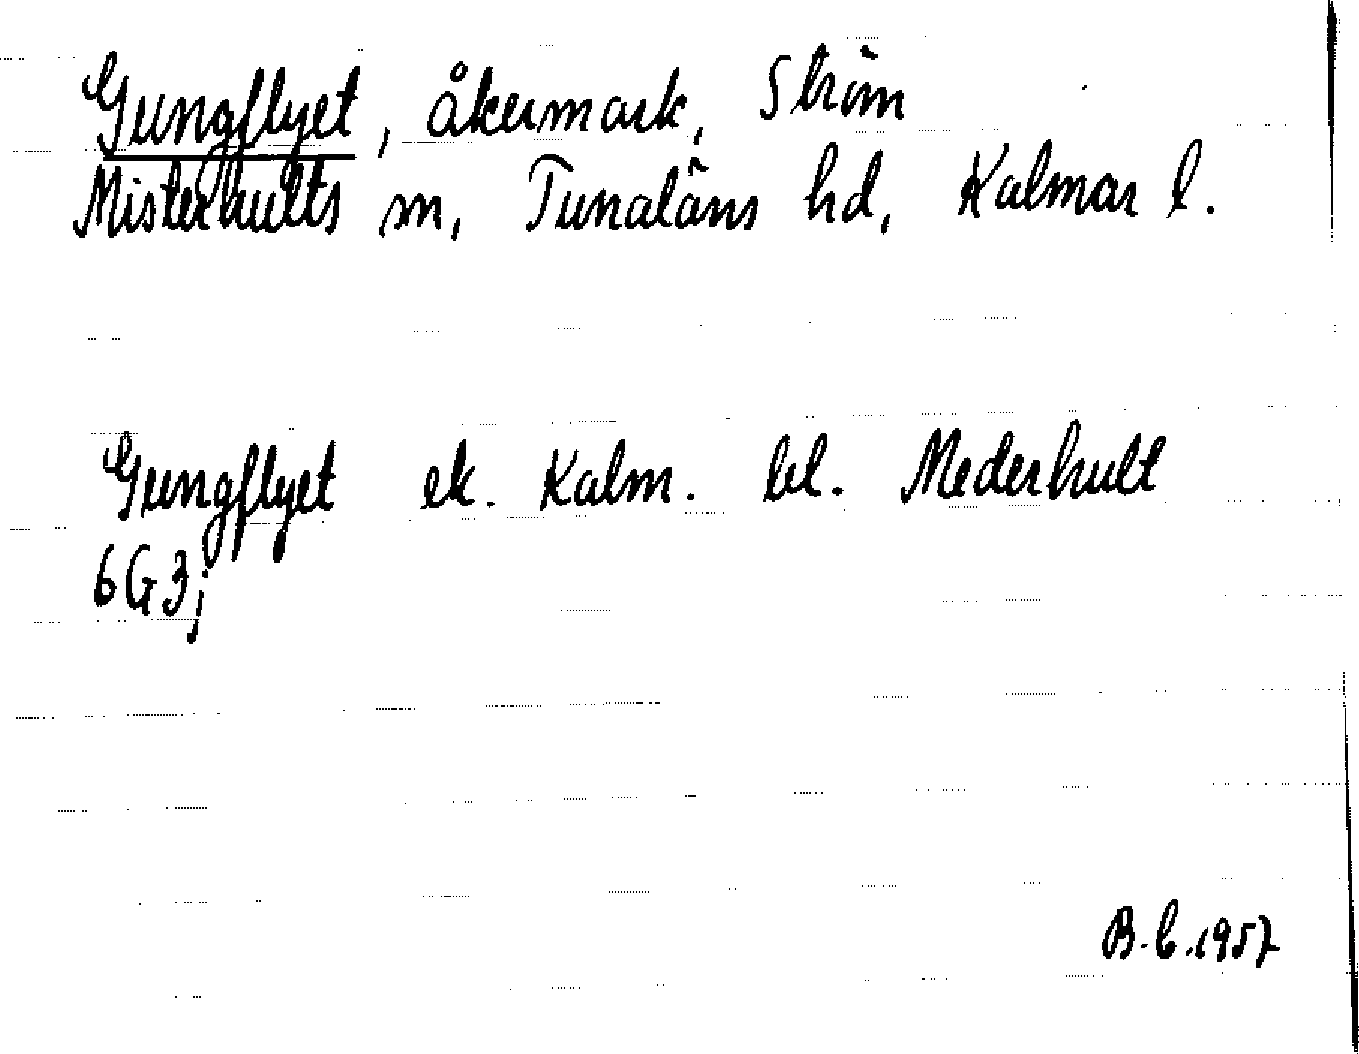 Gungflyet, åkermark, Ström
Misterhults sn, Tunaläns hd, Kalmar l.
Gungflyet ek. Kalm. bl. Mederhult
6G3j
B.C.1957